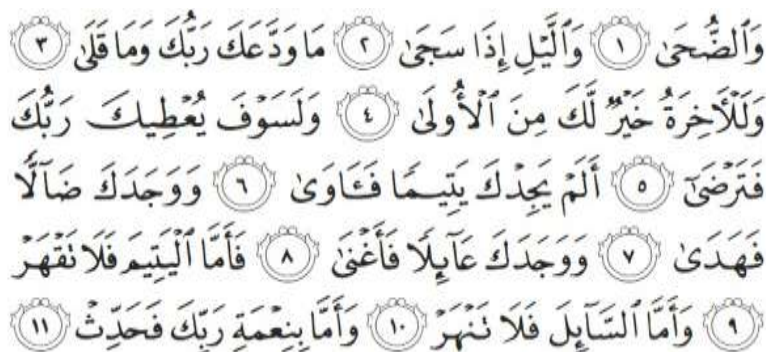 وَٱلضُّحَىٰ ١ وَٱلَّيْلِ إِذَا سَجَىٰ ٢ مَا وَدَّعَكَ رَبُّكَ وَمَا قَلَىٰ ٣
وَلَلْأَخِرَةُ خَيْرٌ لَّكَ مِنَ ٱلْأُولَىٰ ٤ وَلَسَوْفَ يُعْطِيكَ رَبُّكَ
فَتَرْضَىٰٓ ٥ أَلَمْ يَجِدْكَ يَتِيمًا فَـَٔاوَىٰ ٦ وَوَجَدَكَ ضَآلًّا
فَهَدَىٰ ٧ وَوَجَدَكَ عَآئِلًا فَأَغْنَىٰ ٨ فَأَمَّا ٱلْيَتِيمَ فَلَا تَقْهَرْ
٩ وَأَمَّا ٱلسَّآئِلَ فَلَا تَنْهَرْ ١٠ وَأَمَّا بِنِعْمَةِ رَبِّكَ فَحَدِّثْ ١١